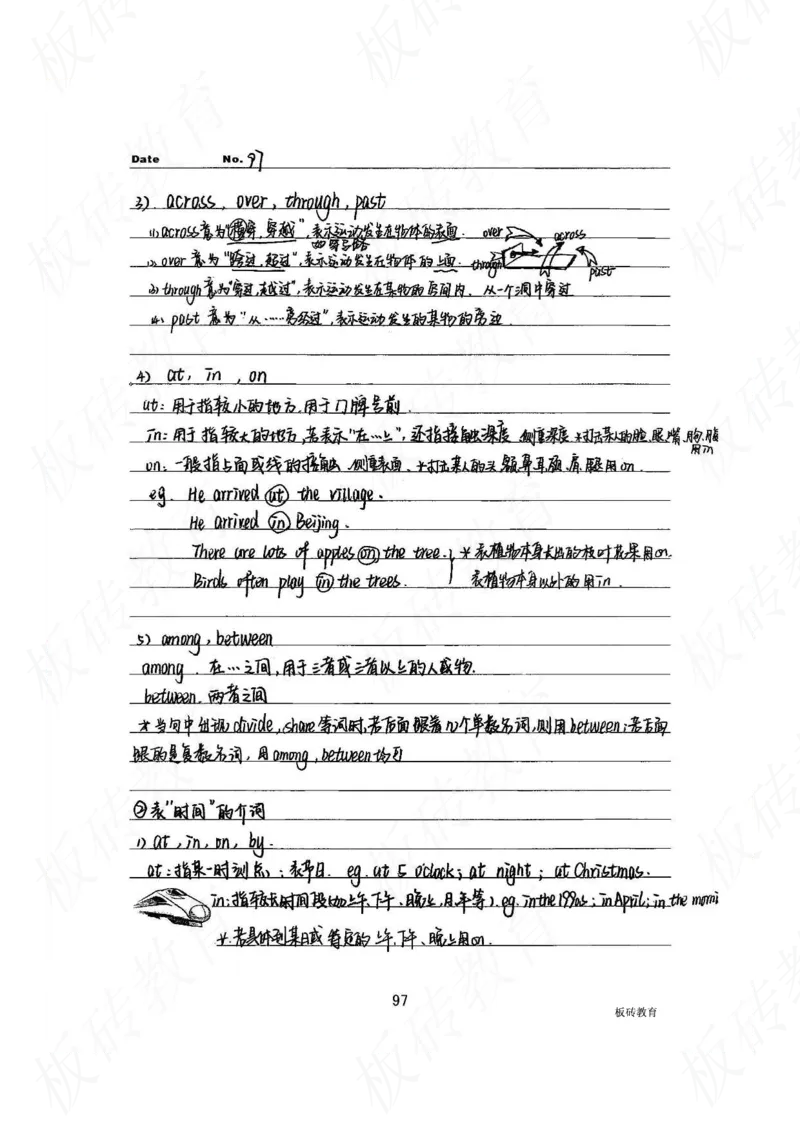 Date No. 97
3) across, over, through, past
(1) across意为"横穿,穿越",表示运动发生在物体的表面.
如穿马路
(2) over意为"跨过,越过",表示运动发生在物体的上面.
(3) through意为"穿过,越过",表示运动发生在某物的空间内、从一个洞中穿过
(4) past意为"从……旁经过",表示运动发生的某物的旁边.
over across
through past
4) at, in, on
at: 用于指较小的地方,用于门牌号前.
in: 用于指较大的地方,若表示"在…上",还指接触深度 侧重深度 *打击某人的脸、眼、嘴、胸、腹
用in
on: 一般指与面或线的接触 侧重表面. *打击某人的头、额、鼻、耳、颈、肩、腿用on.
eg. He arrived at the village.
He arrived in Beijing.
There are lots of apples on the tree. * 表植物本身长出的枝叶花果用on.
Birds often play in the trees. 表植物本身以外的用in.
5) among, between
among. 在…之间,用于三者或三者以上的人或物.
between. 两者之间
*当句中出现divide, share等词时,若后面跟着几个单数名词,则用between;若后面
跟的是复数名词,用among, between均可
②表"时间"的介词
1) at, in, on, by.
at: 指某一时刻(点);表节日. eg. at 5 o'clock; at night; at Christmas.
in: 指较长时间段(如上午、下午、晚上,月,年等). eg. in the 1990s; in April; in the morni
*.若具体到某日或特定的上午、下午、晚上用on.
97
板砖教育